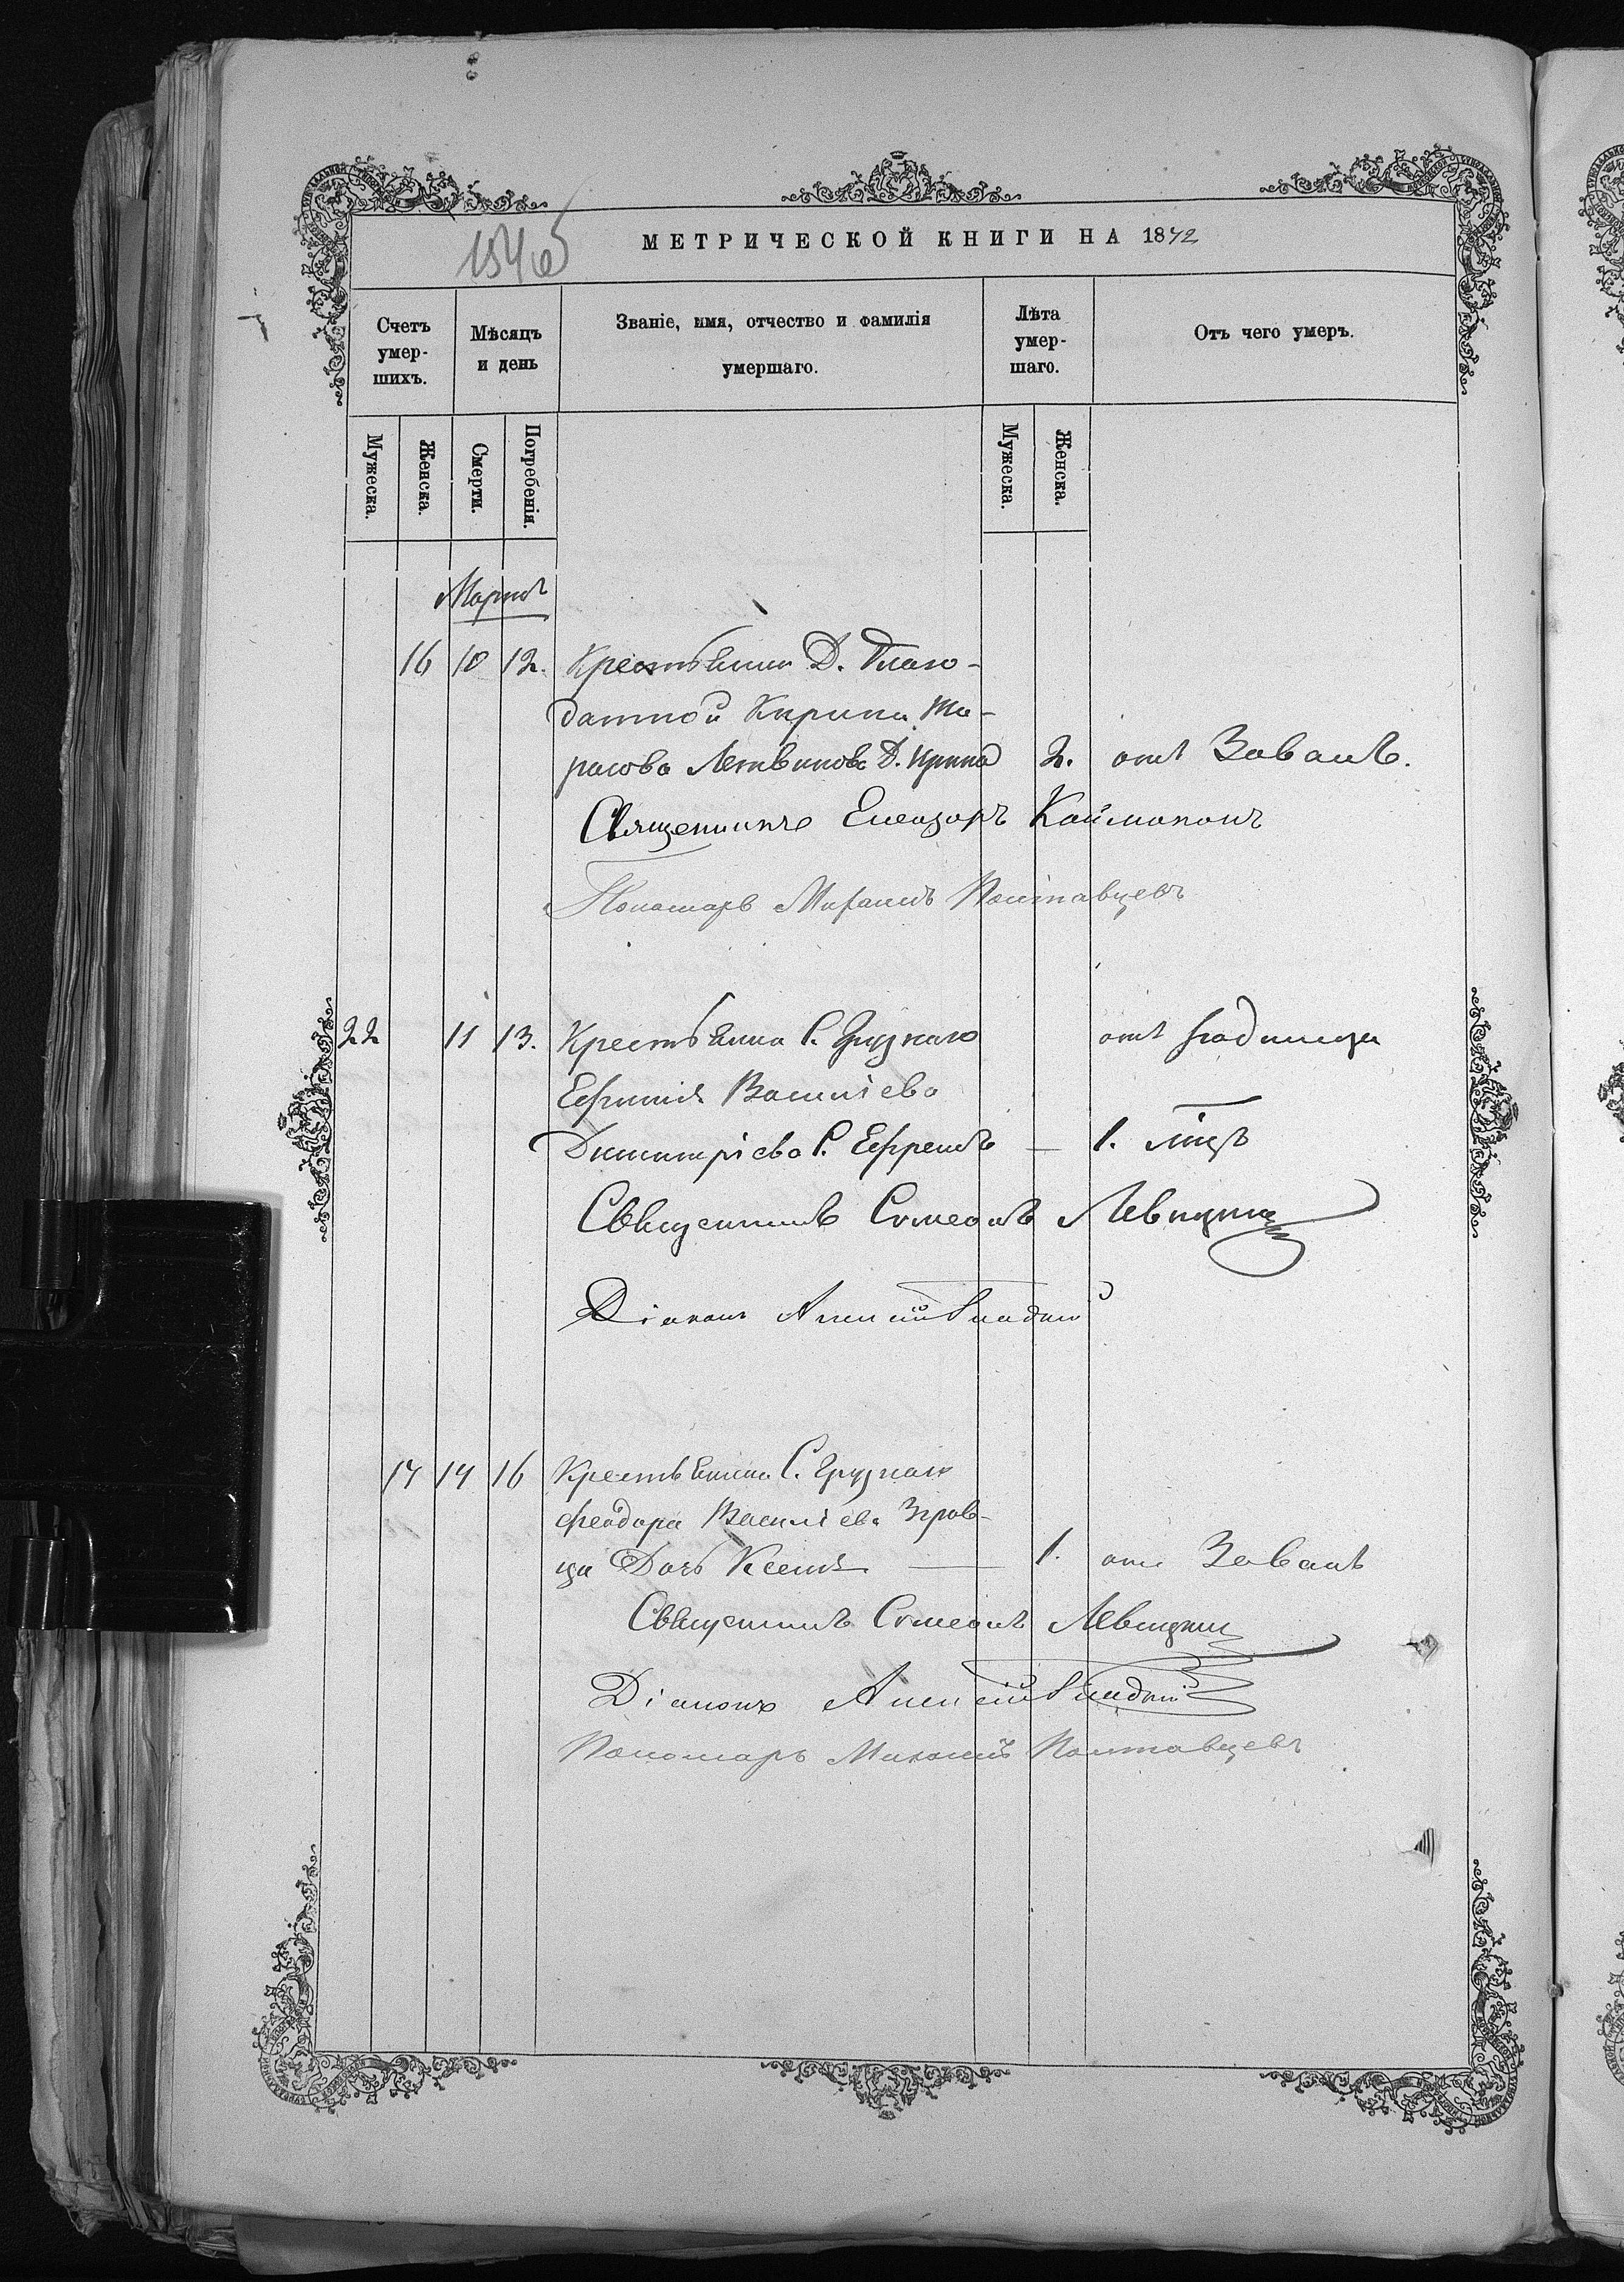 МЕТРИЧЕСКОЙ КНИГИ НА 1872
Счетъ умер-шихъ.
Мѣсяцъ и день
Званіе, имя, отчество и фамилія умершаго.
Лѣта умер-шаго.
Отъ чего умеръ.
Мужеска. Женска. Смерти. Погребенія. Мужеска. Женска.
Мартъ
16 10 12. Крестьянина Д. Благо-
датной Кирила Та-
расова Летвинова Д. Ирина 2. отъ Завалъ.
Священникъ Елеазаръ Каймаканъ
Пономарь Михаилъ Полтавцевъ
22 11 13. Крестьянина С. Грузкаго отъ
Ефимія Василіева
Димитріева С. Ефремъ — 1. мѣс.
Священникъ Симеонъ Левицкій
Діаконъ Алексій
17 14 16 Крестьянина С. Грузкаго
Феодора Василіева
ца Дочь Ксенія — 1. отъ Завалъ
Священникъ Симеонъ Левицкій
Діаконъ Алексій
Пономарь Михаилъ Полтавцевъ